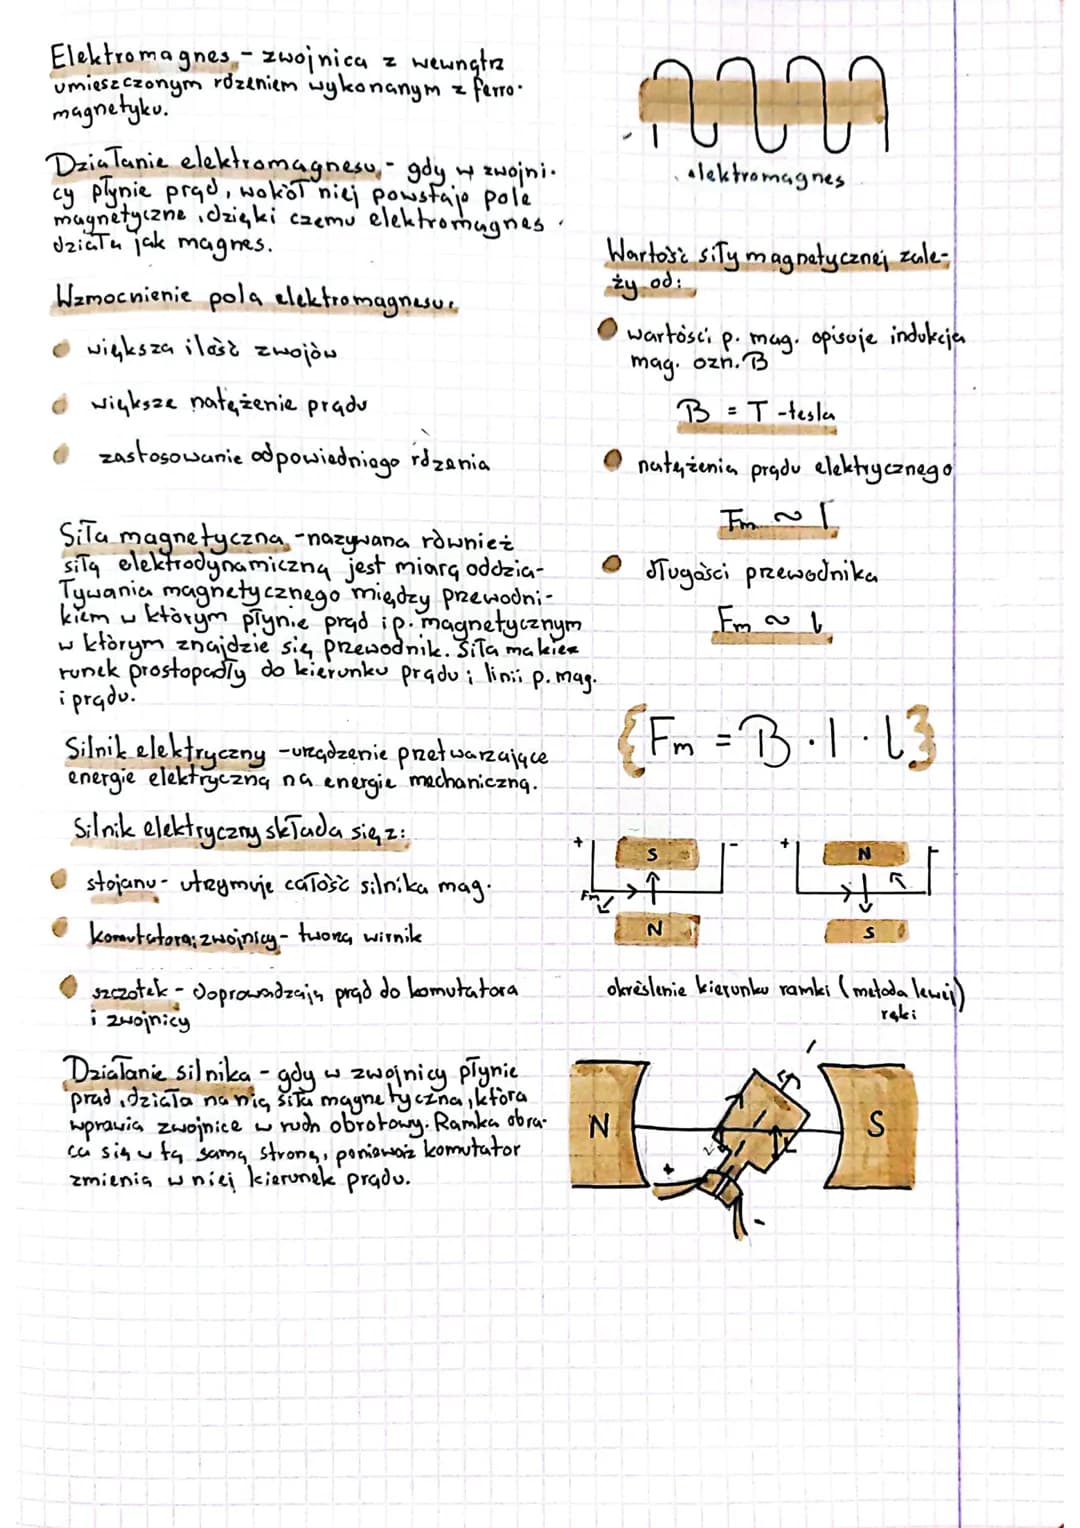 Elektromagnes - zwojnica z wewnątrz
umieszczonym rdzeniem wykonanym z ferro-
magnetyku.
Działanie elektromagnesu - gdy w zwojni-
cy płynie prąd, wokół niej powstaje pole
magnetyczne, dzięki czemu elektromagnes
działa jak magnes.
Wzmocnienie pola elektromagnesu:
większa ilość zwojów
większe natężenie prądu
zastosowanie odpowiedniego rdzenia
Siła magnetyczna - nazywana również
siłą elektrodynamiczną jest miarą oddzia-
ływania magnetycznego między przewodni-
kiem w którym płynie prąd i p. magnetycznym
w którym znajdzie się przewodnik. Siła ma kie-
runek prostopadły do kierunku prądu i linii p. mag.
i prądu.
Silnik elektryczny - urządzenie przetwarzające
energie elektryczną na energie mechaniczną.
Silnik elektryczny składa się z:
stojanu - utrzymuje całość silnika mag.
komutatora i zwojnicy - tworzą wirnik
szczotek - doprowadzają prąd do komutatora
i zwojnicy
Działanie silnika - gdy w zwojnicy płynie
prąd, działa na nią siła magnetyczna, która
wprawia zwojnice w ruch obrotowy. Ramka obra-
ca się w tą samą stronę, ponieważ komutator
zmienia w niej kierunek prądu.
elektromagnes
Wartość siły magnetycznej zale-
ży od:
wartości p. mag. opisuje indukcja
mag. ozn. B
B = T - tesla
natężenia prądu elektrycznego
Fm ~ I
długości przewodnika
Fm ~ l
{Fm = B · I · l}
+ S -
Fm
N
+ N -
S
określenie kierunku ramki (metoda lewej)
ręki
N S
+
-